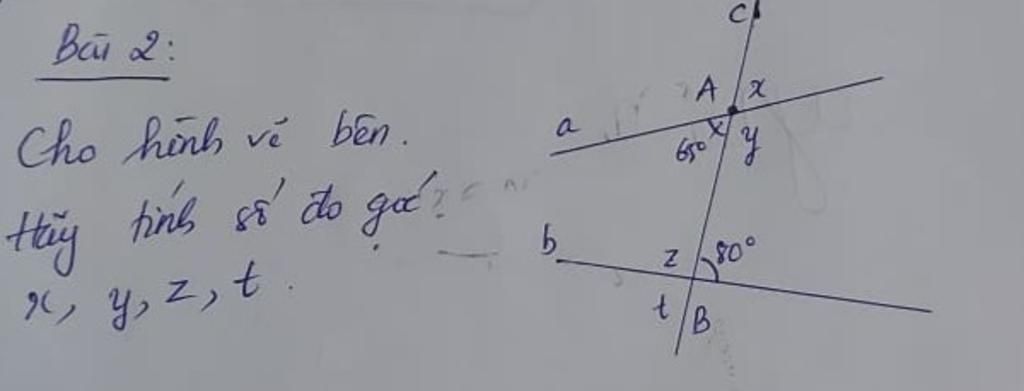 Bài 2:
Cho hình vẽ bên.
Hãy tính số đo góc
x, y, z, t.
C
A x
a
65° y
b
z 80°
t B